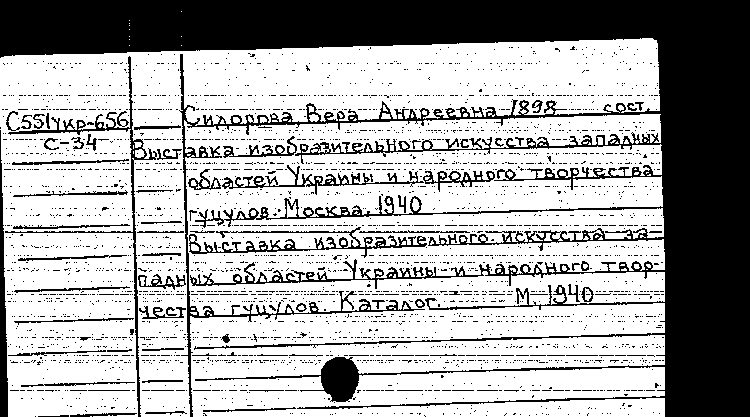 С551укр-656 Сидорова, Вера Андреевна, 1898 сост.
С-34
Выставка изобразительного искусства западных
областей Украины и народного творчества
гуцулов. Москва, 1940
Выставка изобразительного искусства за-
падных областей Украины и народного твор-
чества гуцулов. Каталог. М., 1940